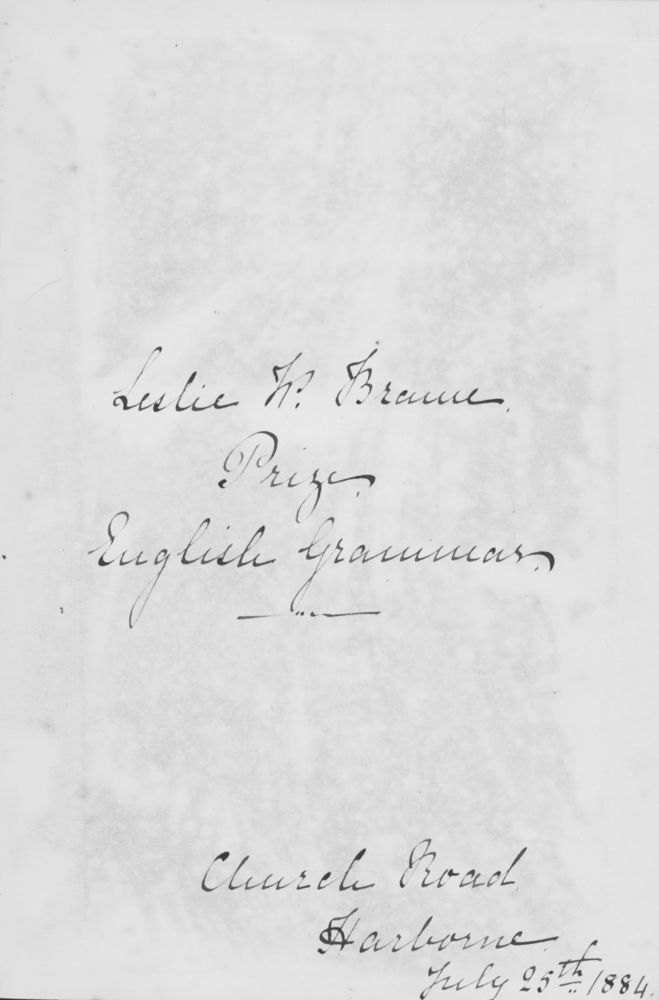 Leslie W. Brame.
Prize.
English Grammar.
Church Road
Harborne
July 25th 1884.